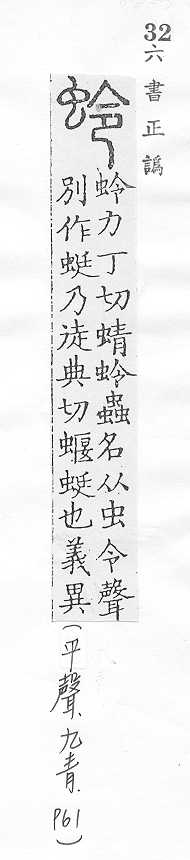 32
六書正譌
蛉
蛉力丁切蜻蛉蟲名从虫令聲
別作蜓乃徒典切蝘蜓也義異
(平聲、九青、P61)